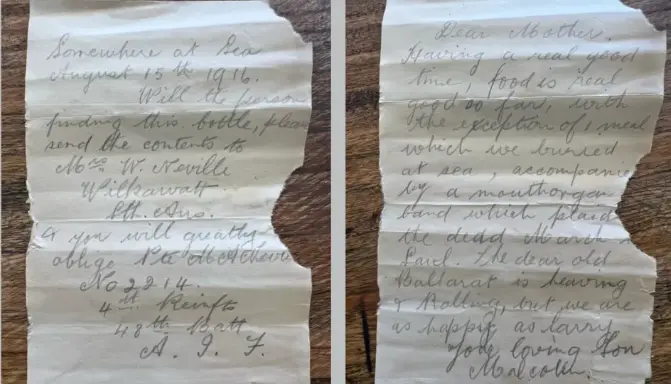 Somewhere at Sea
August 15th 1916.
Will the person
finding this bottle, please
send the contents to
Mrs W. Neville
Wilkawatt
Sth. Aus.
& you will greatly
oblige Pte M A Neville
No 2214.
4th Reinfts
48th Batt
A. I. F.
Dear Mother.
Having a real good
time, food is real
good so far, with
the exception of 1 meal
which we burred
at sea, accompanie
by a mouthorgan
band which plaid
the dead March
Saul. The dear old
Ballarat is heaving
& Rolling, but we are
as happy as larry
your loving Son
Malcolm.